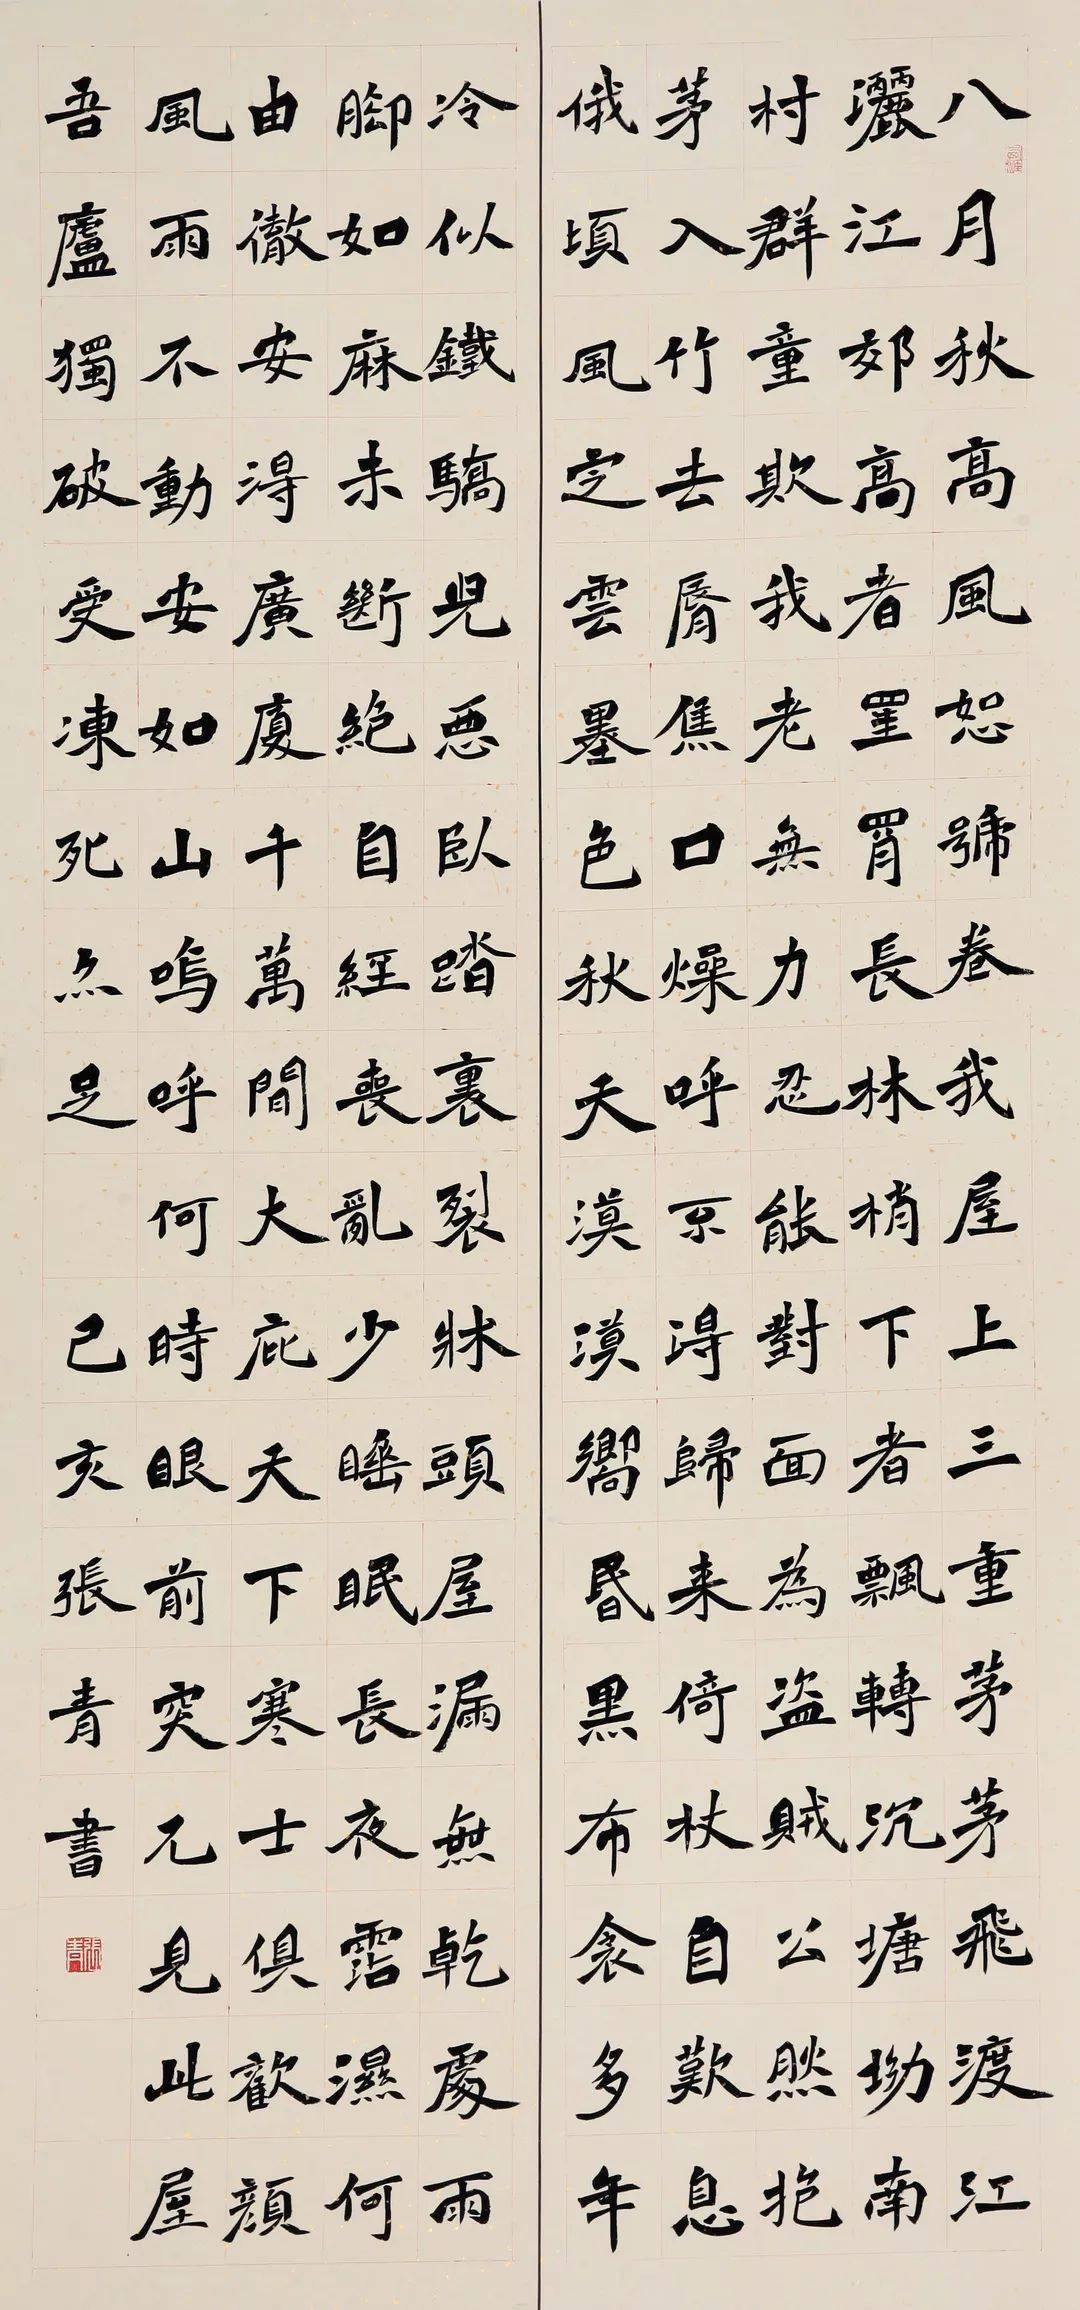 八月秋高風恕號卷我屋上三重茅茅飛渡江
灑江郊高者罣罥長林梢下者飄轉沉塘坳南
村群童欺我老無力忍能對面為盜賊公然抱
茅入竹去脣焦口燥呼不得歸来倚杖自歎息
俄頃風定雲墨色秋天漠漠嚮昏黑布衾多年
冷似鐵驕兒惡臥踏裏裂牀頭屋漏無乾處雨
腳如麻未斷絕自經喪亂少睡眠長夜霑濕何
由徹安得廣廈千萬間大庇天下寒士俱歡顏
風雨不動安如山嗚呼何時眼前突兀見此屋
吾廬獨破受凍死亦足 己亥張青書